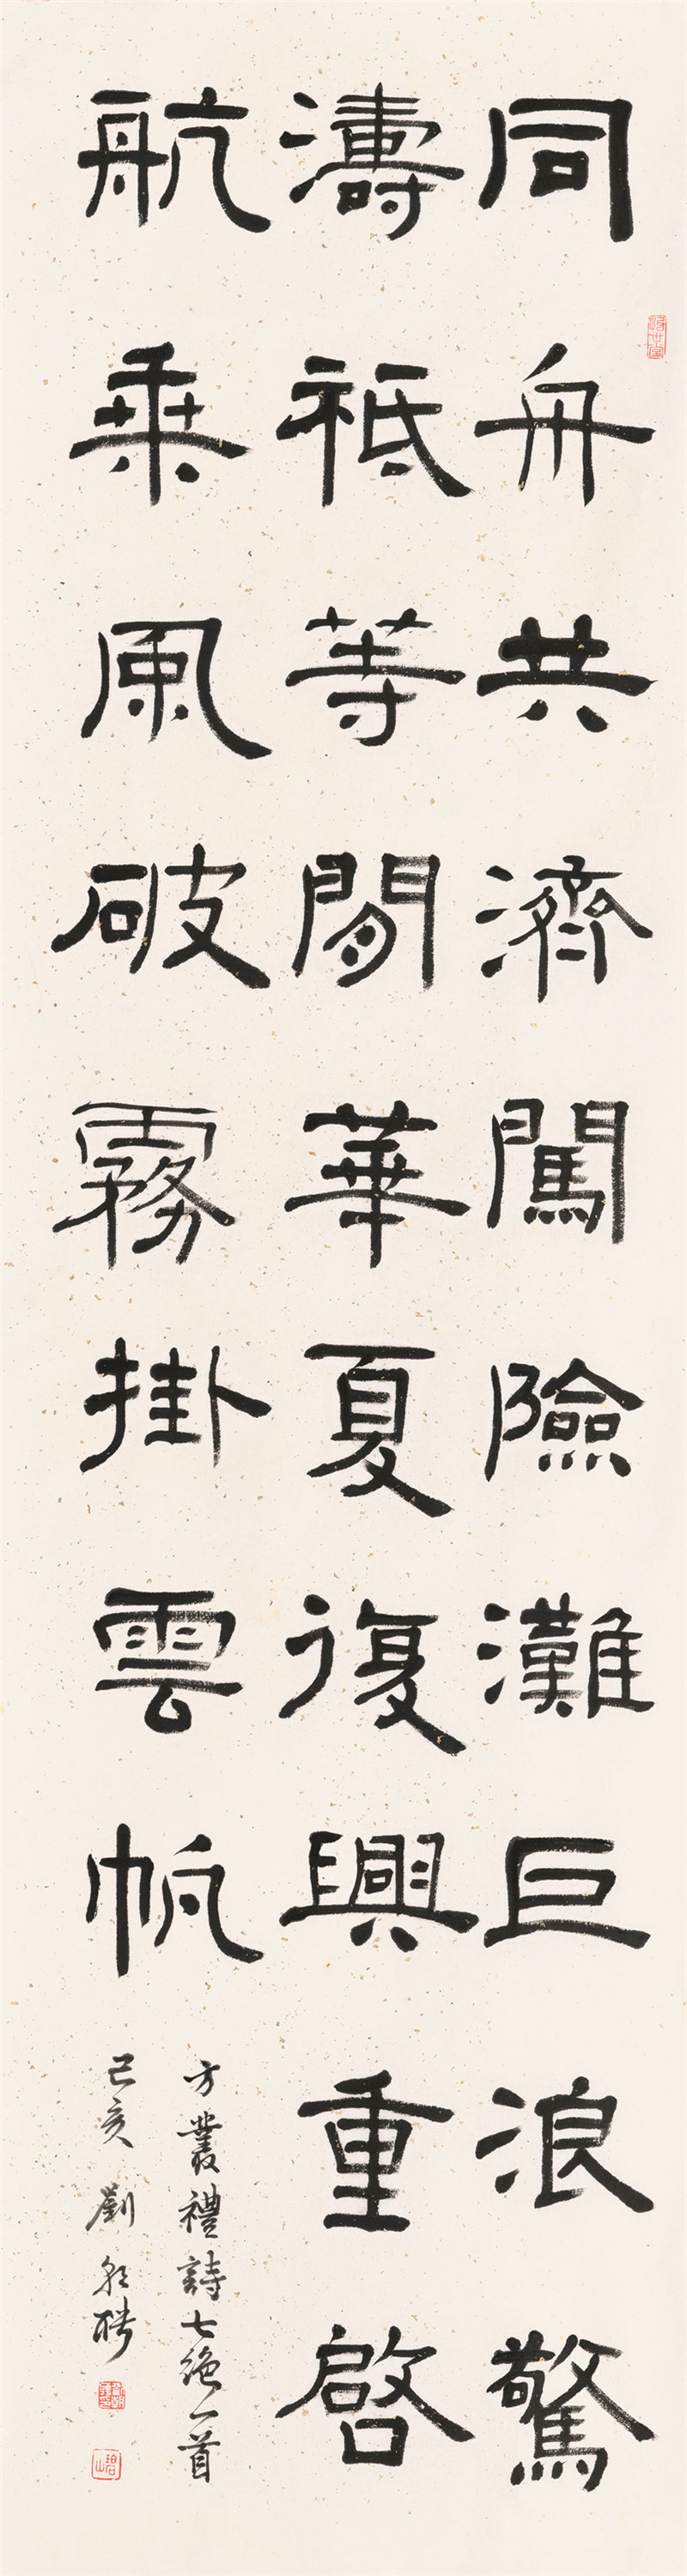 同舟共濟闖險灘巨浪驚
濤祗等閒華夏復興重啓
航乘風破霧掛雲帆
方叢禮詩七絕一首
己亥 劉